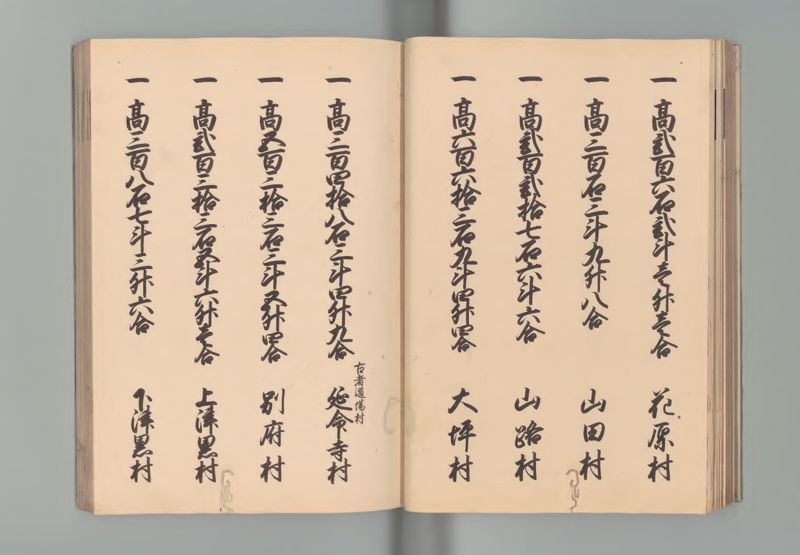 一 高弐百六石弐斗壱升壱合 花原村
一 高三百石三斗九升八合 山田村
一 高弐百弐拾七石六斗六合 山路村
一 高六百六拾三石九斗四升四合 大坪村
一 高三百四拾八石三斗四升九合 延命寺村
古者道場村
一 高五百三拾三石三斗五升四合 別府村
一 高弐百三拾三石五斗六升壱合 上津黒村
一 高三百八石七斗三升六合 下津黒村